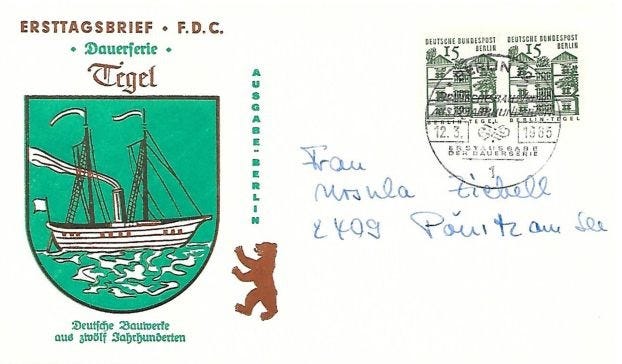 ERSTTAGSBRIEF · F.D.C.
· Dauerserie ·
Tegel
AUSGABE-BERLIN
DEUTSCHE BUNDESPOST
BERLIN
15
BERLIN-TEGEL
DEUTSCHE BUNDESPOST
BERLIN
15
BERLIN-TEGEL
BERLIN 12
12.3. 1965
ERSTAUSGABE
DER DAUERSERIE
1
Frau
Ursula Ziebell
2409 Pönitz am See
Deutsche Bauwerke
aus zwölf Jahrhunderten